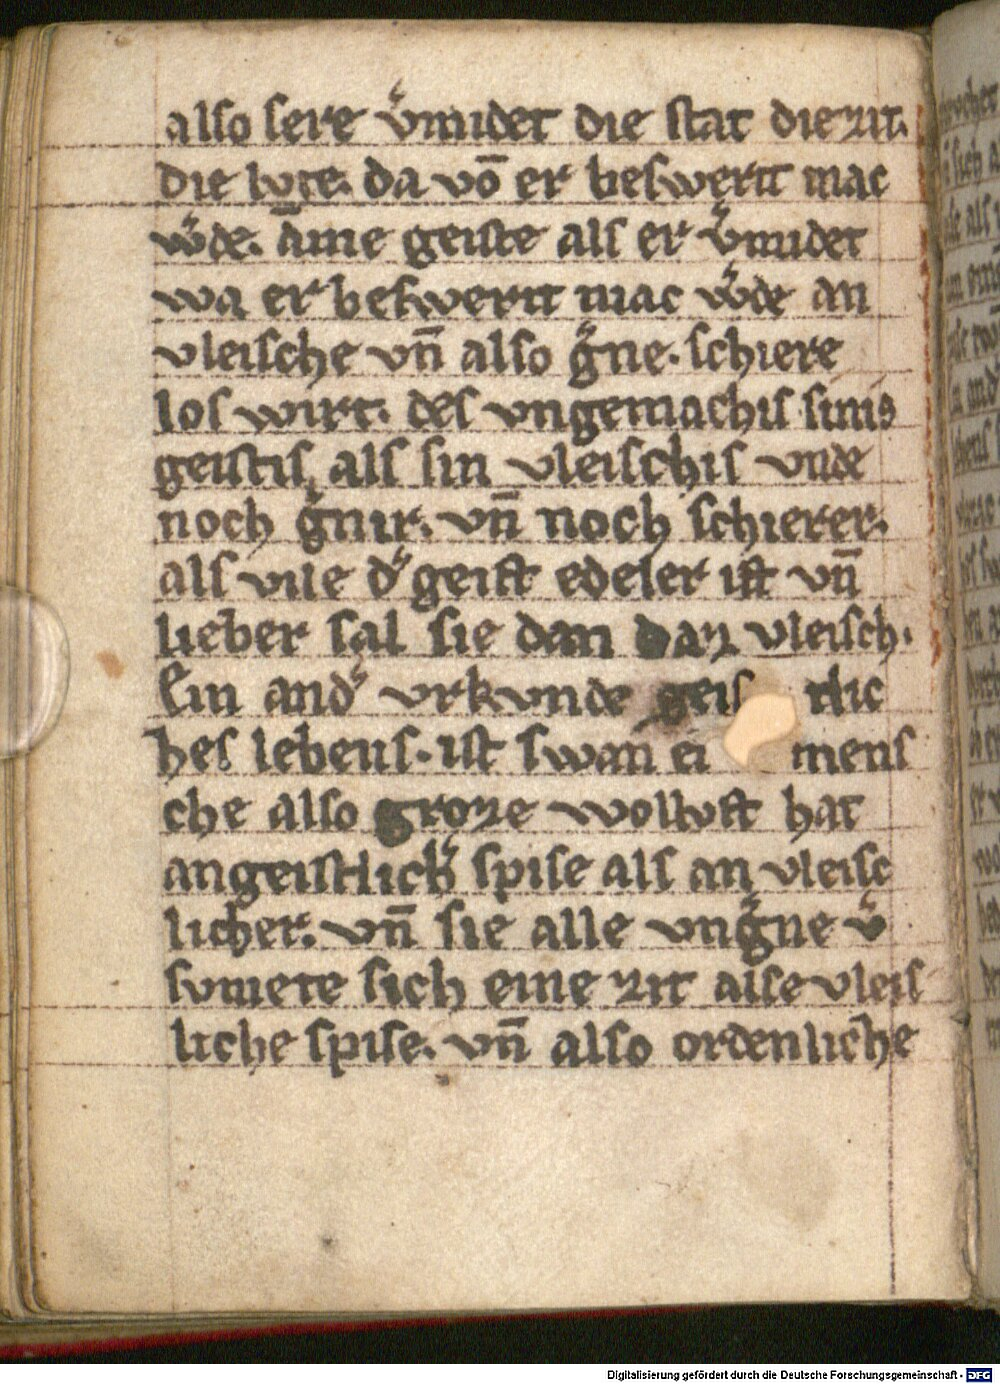 also sere v͛midet die stat die zit.
die lvte. da vō er beswerit mac
w͛de. āme geiste als er v͛midet
wa er beswerit mac w͛de an
vleische vn̄ also g͛ne. schiere
los wirt. des vngemachis sinis
geistis, als sin vleischis vnde
noch g͛nir. vn̄ noch schierer.
als vile d͛ geist edeler ist vn̄
lieber sal sie dan daz vleisch.
Ein and͛ vrkvnde geis tlic
hes lebens. ist swan ei mens
che also groze wollvst hat
an geistlich͛ spise als an vleisc
licher. vn̄ sie alle vng͛ne v͛
svmete sich eine zit alse vleis
liche spise. vn̄ also ordenliche
Digitalisierung gefördert durch die Deutsche Forschungsgemeinschaft - DFG